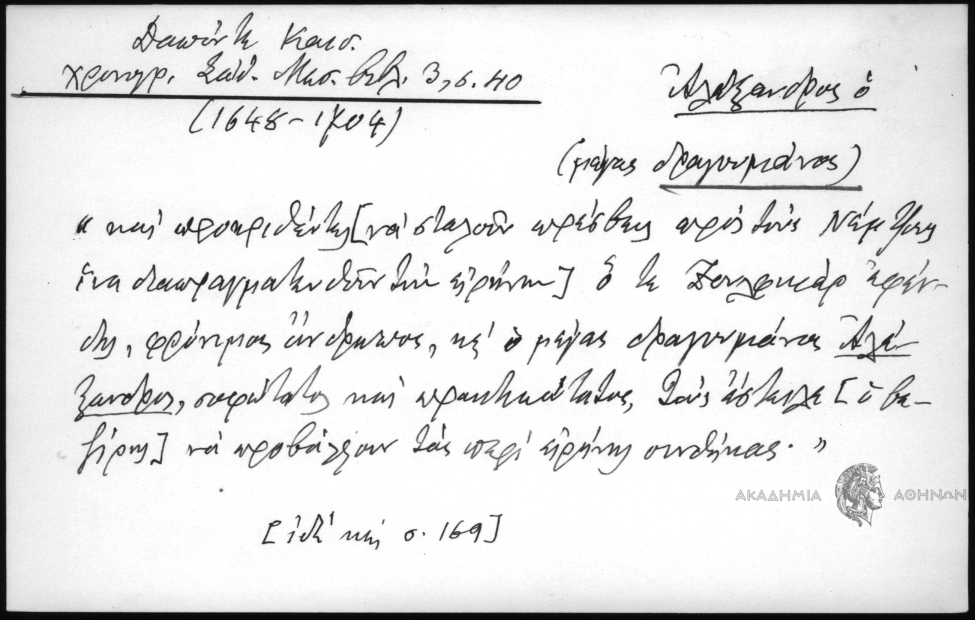 Δαπόντε Καισ.
χρονογρ. Σάθ. Μεσ. βιβλ. 3, σ. 40
(1648-1704)
Ἀλέξανδρος ὁ
(μέγας δραγουμάνος)
"καὶ προκριθέντες [νὰ σταλοῦν πρέσβεις πρὸς τοὺς Νέμτζους
ἵνα διαπραγματευθοῦν τὴν εἰρήνην] ὅ τε Ζουλφικὰρ ἐφέν-
δης, φρόνιμος ἄνθρωπος, κὲ ὁ μέγας δραγουμάνος Ἀλέ
ξανδρος, σοφώτατος καὶ πρακτικώτατος, τοὺς ἔστειλε [ὁ βε-
ζίρης] νὰ προβάλλουν τὰς περὶ εἰρήνης συνθήκας."
[ἰδὲ καὶ σ. 169]
ΑΚΑΔΗΜΙΑ ΑΘΗΝΩΝ